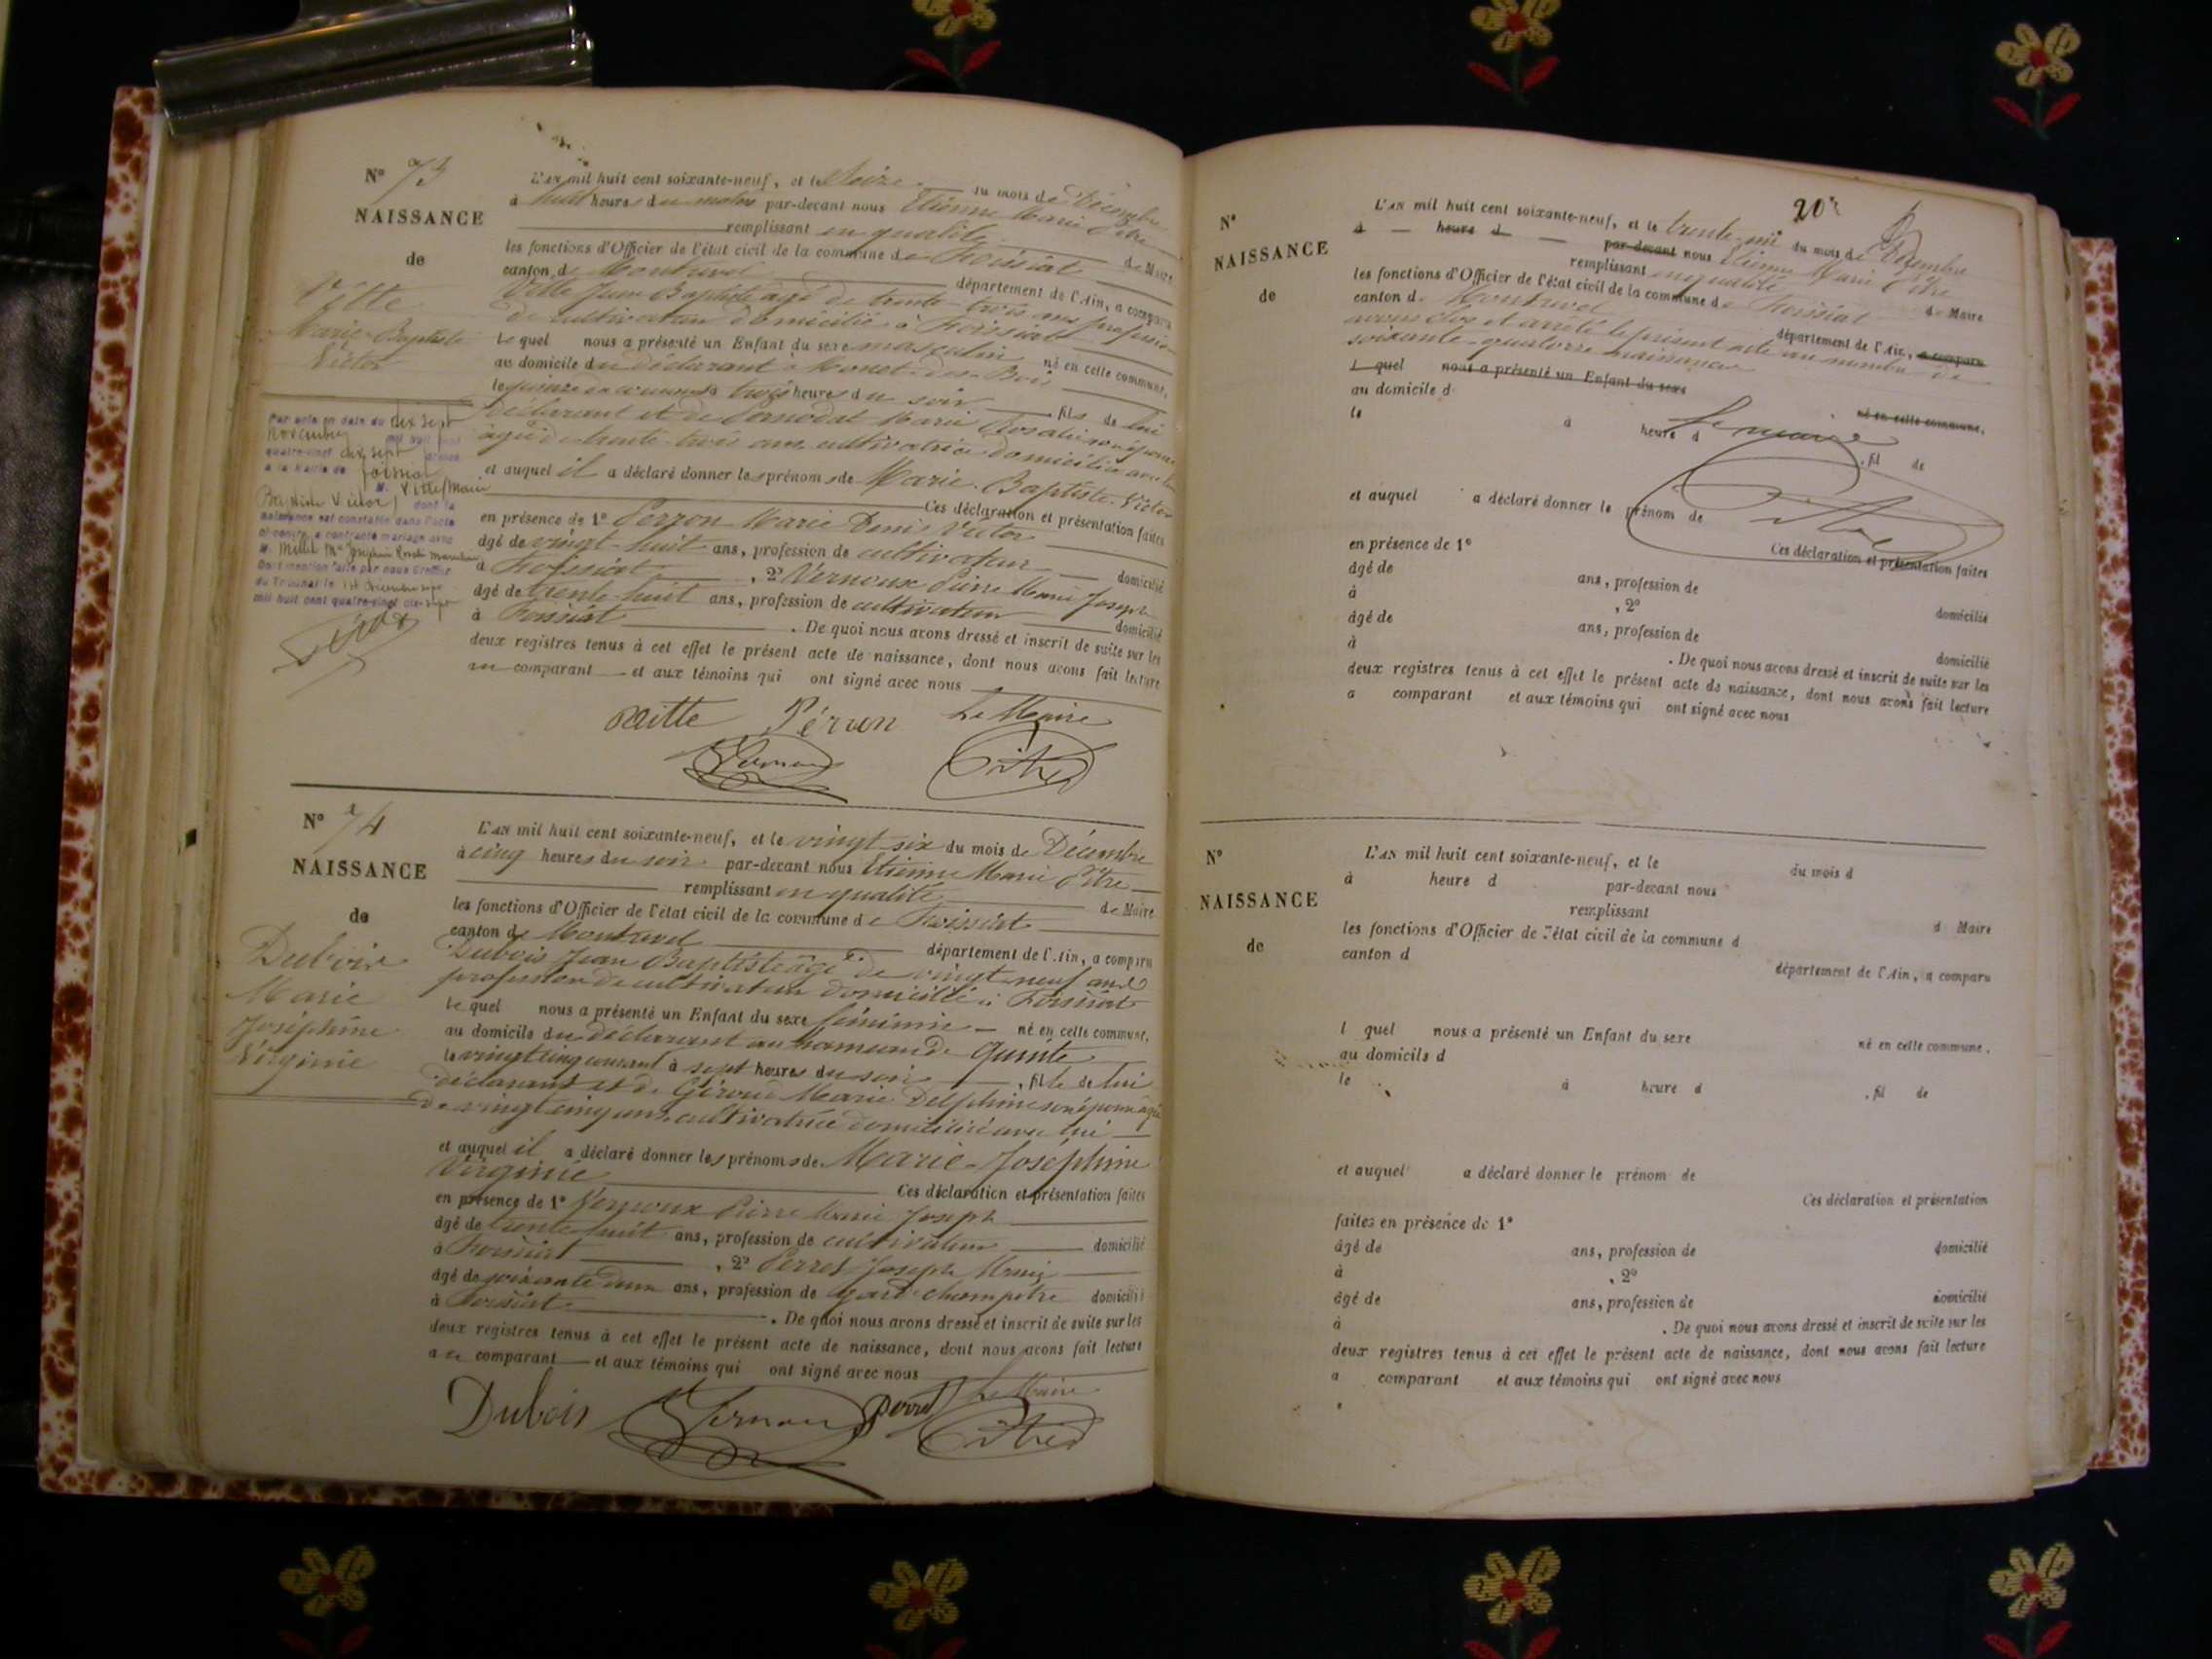 N° 73
NAISSANCE
de
Vitte
Marie-Baptiste
Victor
L'AN mil huit cent soixante-neuf, et le Seize du mois de Décembre
à huit heures du matin par-devant nous Etienne Marie Pitre
remplissant en qualité de Maire
les fonctions d'Officier de l'état civil de la commune de Foissiat
canton de Montrevel département de l'Ain, a comparu
Vitte Jean Baptiste âgé de trente-trois ans profession
de cultivateur domicilié à Foissiat
Lequel nous a présenté un Enfant du sexe masculin né en cette commune,
au domicile du déclarant à
le quinze du courant à trois heures du soir fils de lui
déclarant et de Marie Rosalie son épouse
âgée de trente-trois ans, cultivatrice domiciliée avec lui
et auquel il a déclaré donner les prénoms de Marie-Baptiste-Victor
Ces déclaration et présentation faites
en présence de 1° Perron Marie Denis Victor
âgé de vingt-huit ans, profession de cultivateur domicilié
à Foissiat, 2° Vernoux Pierre Marie Joseph
âgé de trente-huit ans, profession de cultivateur domicilié
à Foissiat. De quoi nous avons dressé et inscrit de suite sur les
deux registres tenus à cet effet le présent acte de naissance, dont nous avons fait lecture
au comparant et aux témoins qui ont signé avec nous
Vitte Péron Le Maire
Vernoux Pitre
Par acte en date du dix sept
novembre mil huit cent
quatre-vingt dix sept dressé
à la Mairie de Foissiat
M. Vitte (Marie
Baptiste Victor) dont la
naissance est constatée dans l'acte
ci-contre, a contracté mariage avec
M. Millet Mie Joséphine
Dont mention faite par nous Greffier
du Tribunal le 14 Décembre
mil huit cent quatre-vingt dix-sept
N° 74
NAISSANCE
de
Dubois
Marie
Joséphine
Virginie
L'AN mil huit cent soixante-neuf, et le vingt six du mois de Décembre
à cinq heures du soir par-devant nous Etienne Marie Pitre
remplissant en qualité de Maire
les fonctions d'Officier de l'état civil de la commune de Foissiat
canton de Montrevel département de l'Ain, a comparu
Dubois Jean Baptiste âgé de vingt-neuf ans
profession de cultivateur domicilié à Foissiat
Lequel nous a présenté un Enfant du sexe féminin né en cette commune,
au domicile du déclarant au hameau de Quinte
le vingt cinq courant à sept heures du soir, fille de lui
déclarant et de Giroud Marie Delphine son épouse âgée
de vingt cinq ans, cultivatrice domiciliée avec lui
et auquel il a déclaré donner les prénoms de Marie-Joséphine
Virginie
Ces déclaration et présentation faites
en présence de 1° Vernoux Pierre Marie Joseph
âgé de trente huit ans, profession de cultivateur domicilié
à Foissiat, 2° Perret Joseph Marie
âgé de soixante deux ans, profession de gard-champêtre domicilié
à Foissiat. De quoi nous avons dressé et inscrit de suite sur les
deux registres tenus à cet effet le présent acte de naissance, dont nous avons fait lecture
au comparant et aux témoins qui ont signé avec nous
Dubois Vernoux Perret Le Maire
Pitre
20
N°
NAISSANCE
de
L'AN mil huit cent soixante-neuf, et le trente-un du mois de Décembre
à heure d par-devant nous Etienne Marie Pitre
remplissant en qualité de Maire
les fonctions d'Officier de l'état civil de la commune de Foissiat
canton de Montrevel département de l'Ain, a comparu
avons clos et arrêté le présent acte au nombre de
soixante-quatorze naissances
l quel nous a présenté un Enfant du sexe né en cette commune,
au domicile d
le à heure d , fil de
Le maire
Pitre
et auquel a déclaré donner le prénom de
Ces déclaration et présentation faites
en présence de 1°
âgé de ans, profession de domicilié
à , 2°
âgé de ans, profession de domicilié
à . De quoi nous avons dressé et inscrit de suite sur les
deux registres tenus à cet effet le présent acte de naissance, dont nous avons fait lecture
a comparant et aux témoins qui ont signé avec nous
N°
NAISSANCE
de
L'AN mil huit cent soixante-neuf, et le du mois d
à heure d par-devant nous
remplissant d Maire
les fonctions d'Officier de l'état civil de la commune d
canton d département de l'Ain, a comparu
l quel nous a présenté un Enfant du sexe né en cette commune,
au domicile d
le à heure d , fil de
et auquel a déclaré donner le prénom de
Ces déclaration et présentation
faites en présence de 1°
âgé de ans, profession de domicilié
à , 2°
âgé de ans, profession de domicilié
à . De quoi nous avons dressé et inscrit de suite sur les
deux registres tenus à cet effet le présent acte de naissance, dont nous avons fait lecture
a comparant et aux témoins qui ont signé avec nous